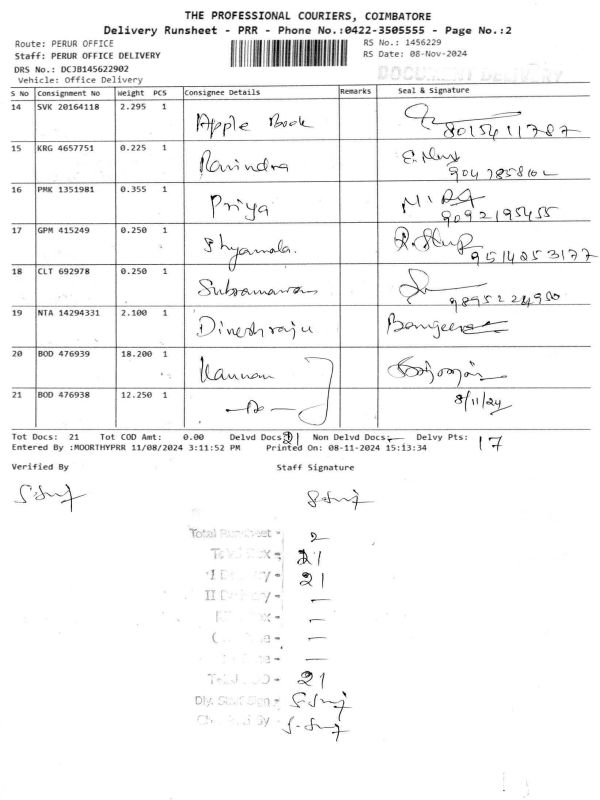 THE PROFESSIONAL COURIERS, COIMBATORE
Delivery Runsheet - PRR - Phone No.:0422-3505555 - Page No.:2
Route: PERUR OFFICE RS No.: 1456229
Staff: PERUR OFFICE DELIVERY RS Date: 08-Nov-2024
DRS No.: DCJB145622902
Vehicle: Office Delivery DOCUMENT DELIVERY
S No Consignment No Weight PCS Consignee Details Remarks Seal & Signature
14 SVK 20164118 2.295 1 Apple Book 8015411787
15 KRG 4657751 0.225 1 Ravindra
16 PMK 1351981 0.355 1 Priya 9092195455
17 GPM 415249 0.250 1 Shyamala. 9514253177
18 CLT 692978 0.250 1
19 NTA 14294331 2.100 1 Dineshraju
20 BOD 476939 18.200 1 Kannan
21 BOD 476938 12.250 1 8/11/24
Tot Docs: 21 Tot COD Amt: 0.00 Delvd Docs: 21 Non Delvd Docs: - Delvy Pts: 17
Entered By :MOORTHYPRR 11/08/2024 3:11:52 PM Printed On: 08-11-2024 15:13:34
Verified By Staff Signature
Total Runsheet - 2
21
I Delivery - 21
II Delivery - -
-
-
-
21
Dly. Staff Sign -
Checked By -